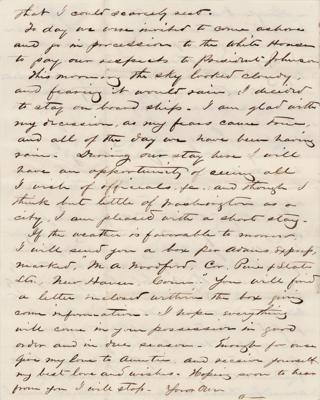 that I could scarcely rest.
To day we were invited to come ashore
and go in procession to the White House
to pay our respects to President Johnson
This morning the sky looked cloudy,
and fearing it would rain, I decided
to stay on board ship. I am glad with
my decision, as my fears came true,
and all of the day we have been having
rain. During our stay here I will
have an opportunity of seeing all
I wish of officials, &c. and though I
think but little of Washington as a
city, I am pleased with a short stay.
If the weather is favorable to morrow
I will send you a box per Adams Express,
marked, M. A. Woodford, Cor. Pine &
Sts. New Haven, Conn." You will find
a letter enclosed within the box giving
some information. I hope everything
will come in your possession in good
order and in due season. Enough for once
Give my love to Auntie, and receive yourself
my best love and wishes. Hoping soon to hear
from you I will stop. Your Own